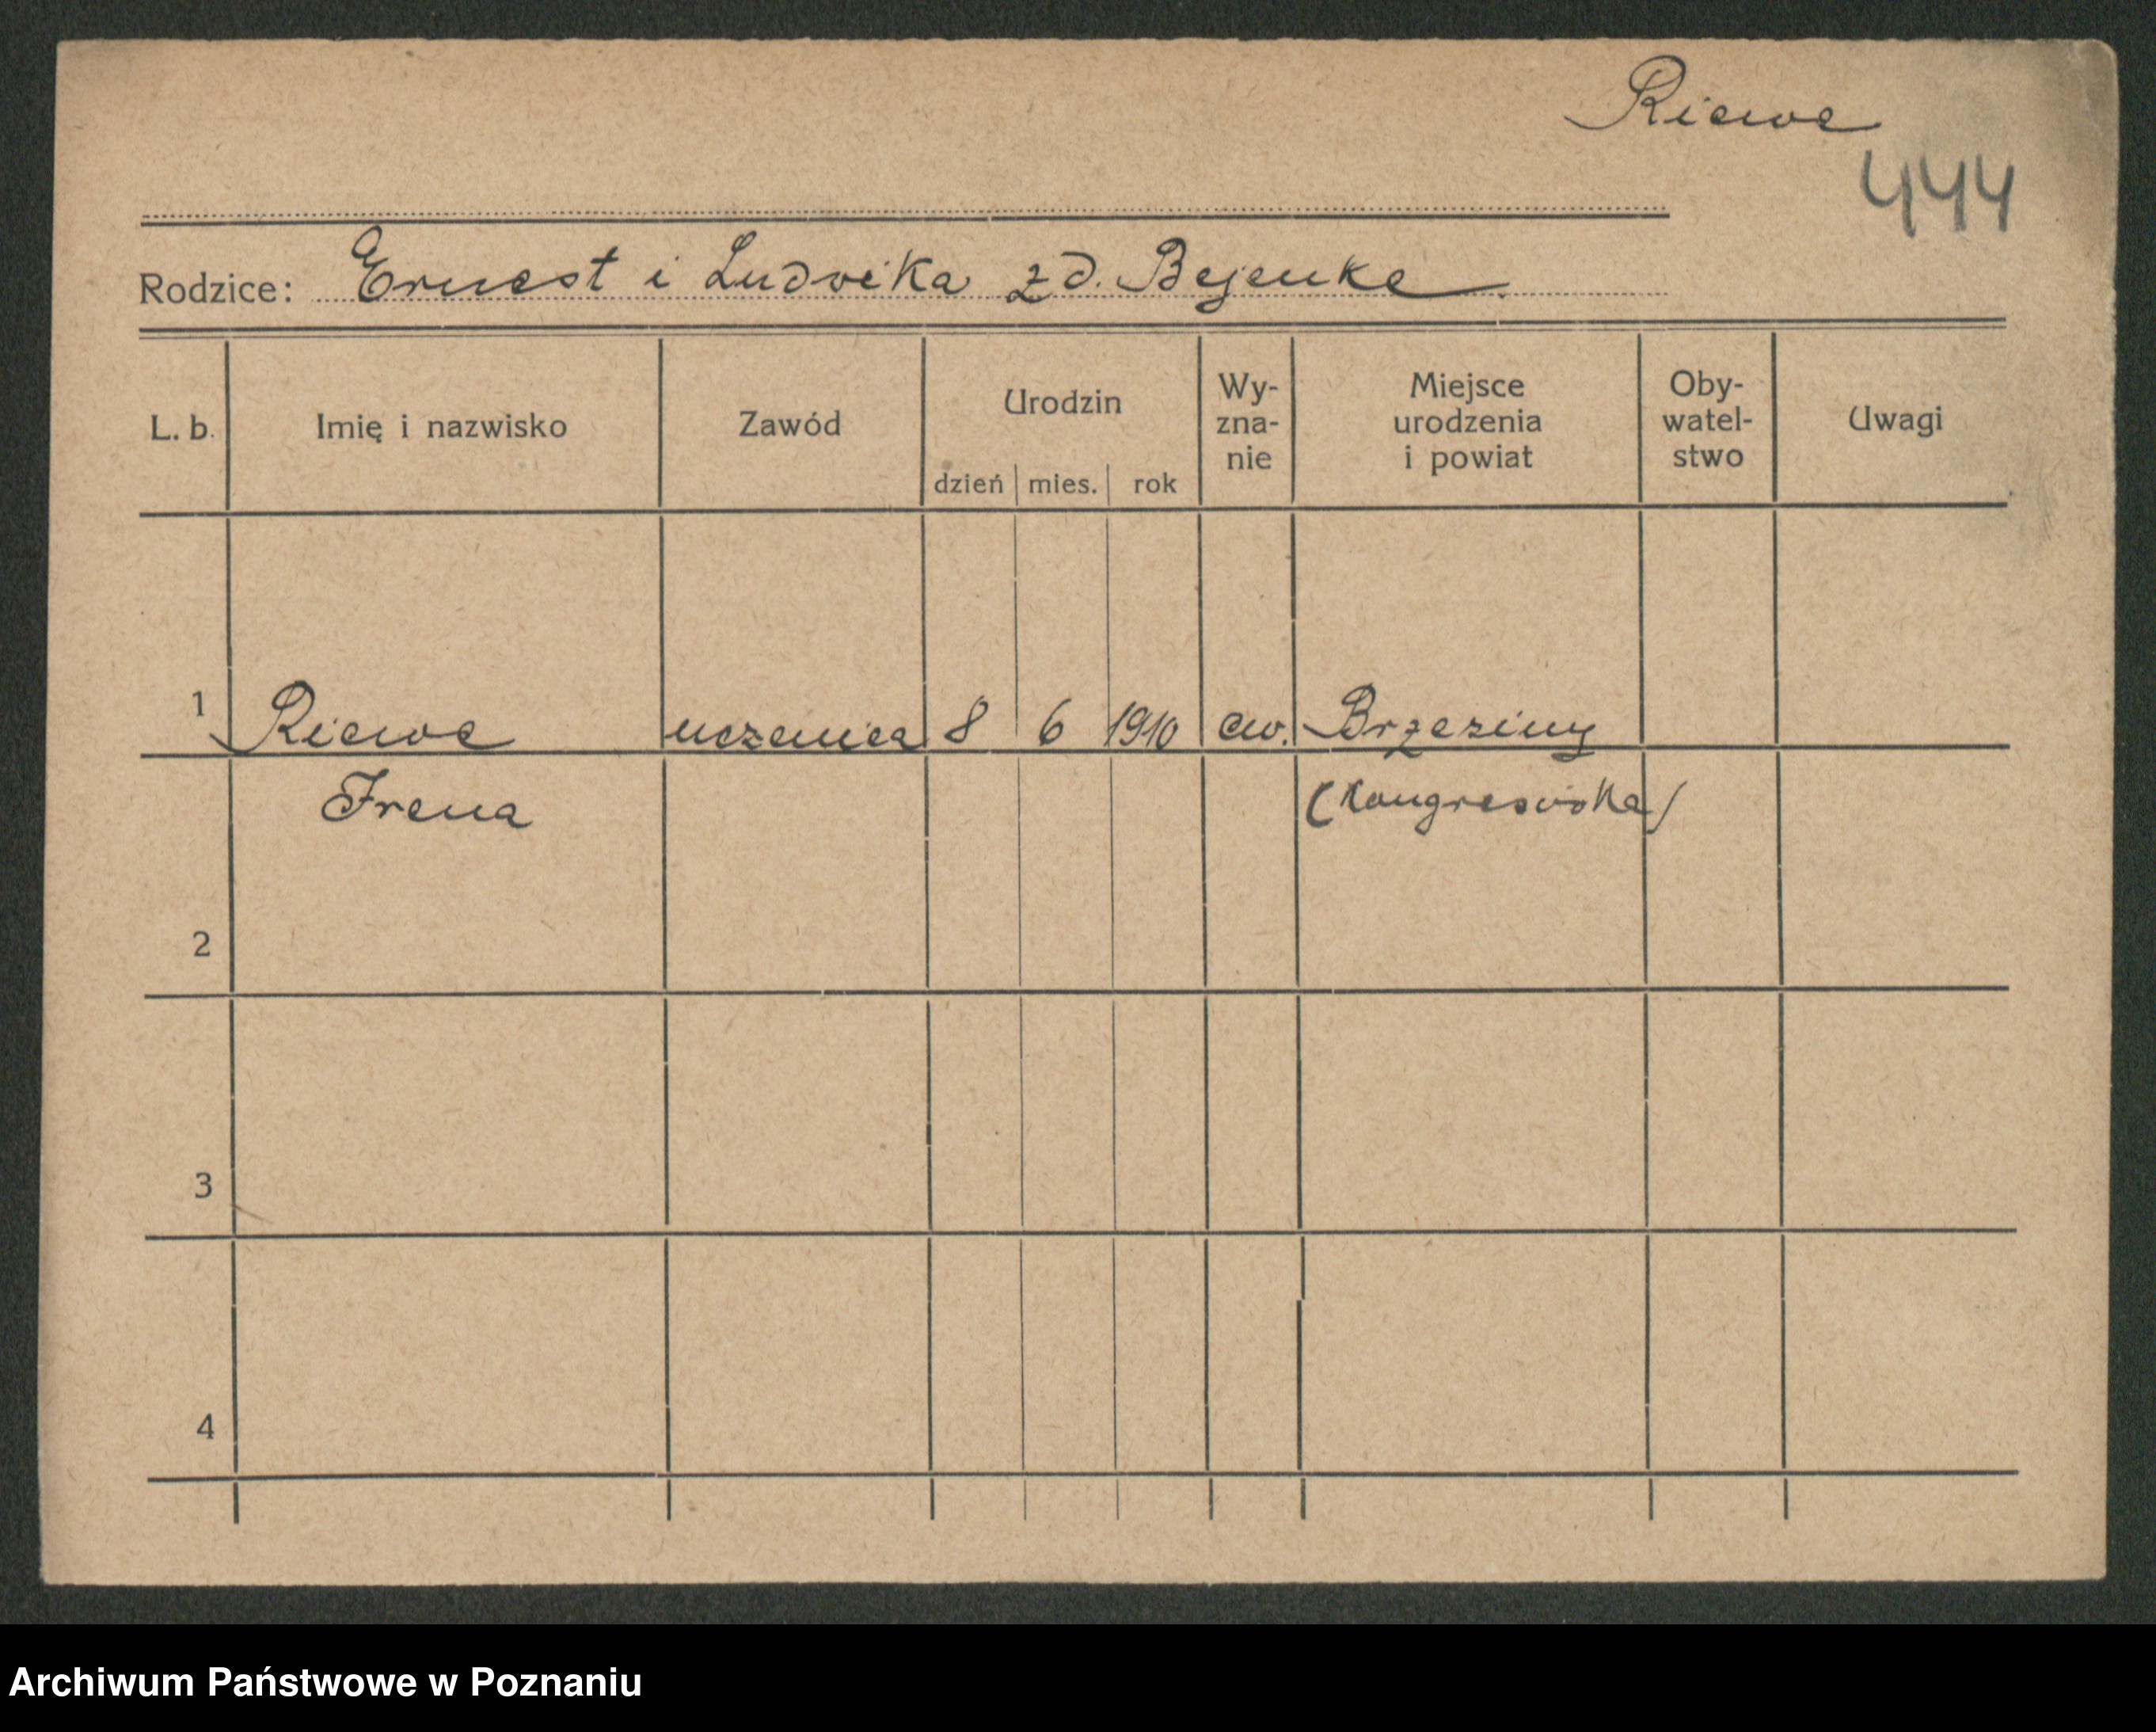 Riewe
444
Rodzice: Ernest i Ludwika zd. Bejenke
L. b. Imię i nazwisko Zawód Urodzin dzień mies. rok Wy-zna-nie Miejsce urodzenia i powiat Oby-watel-stwo Uwagi
1 Riewe uczenica 8 6 1910 ew. Brzeziny
Irena (Kongresówka)
2
3
4
Archiwum Państwowe w Poznaniu